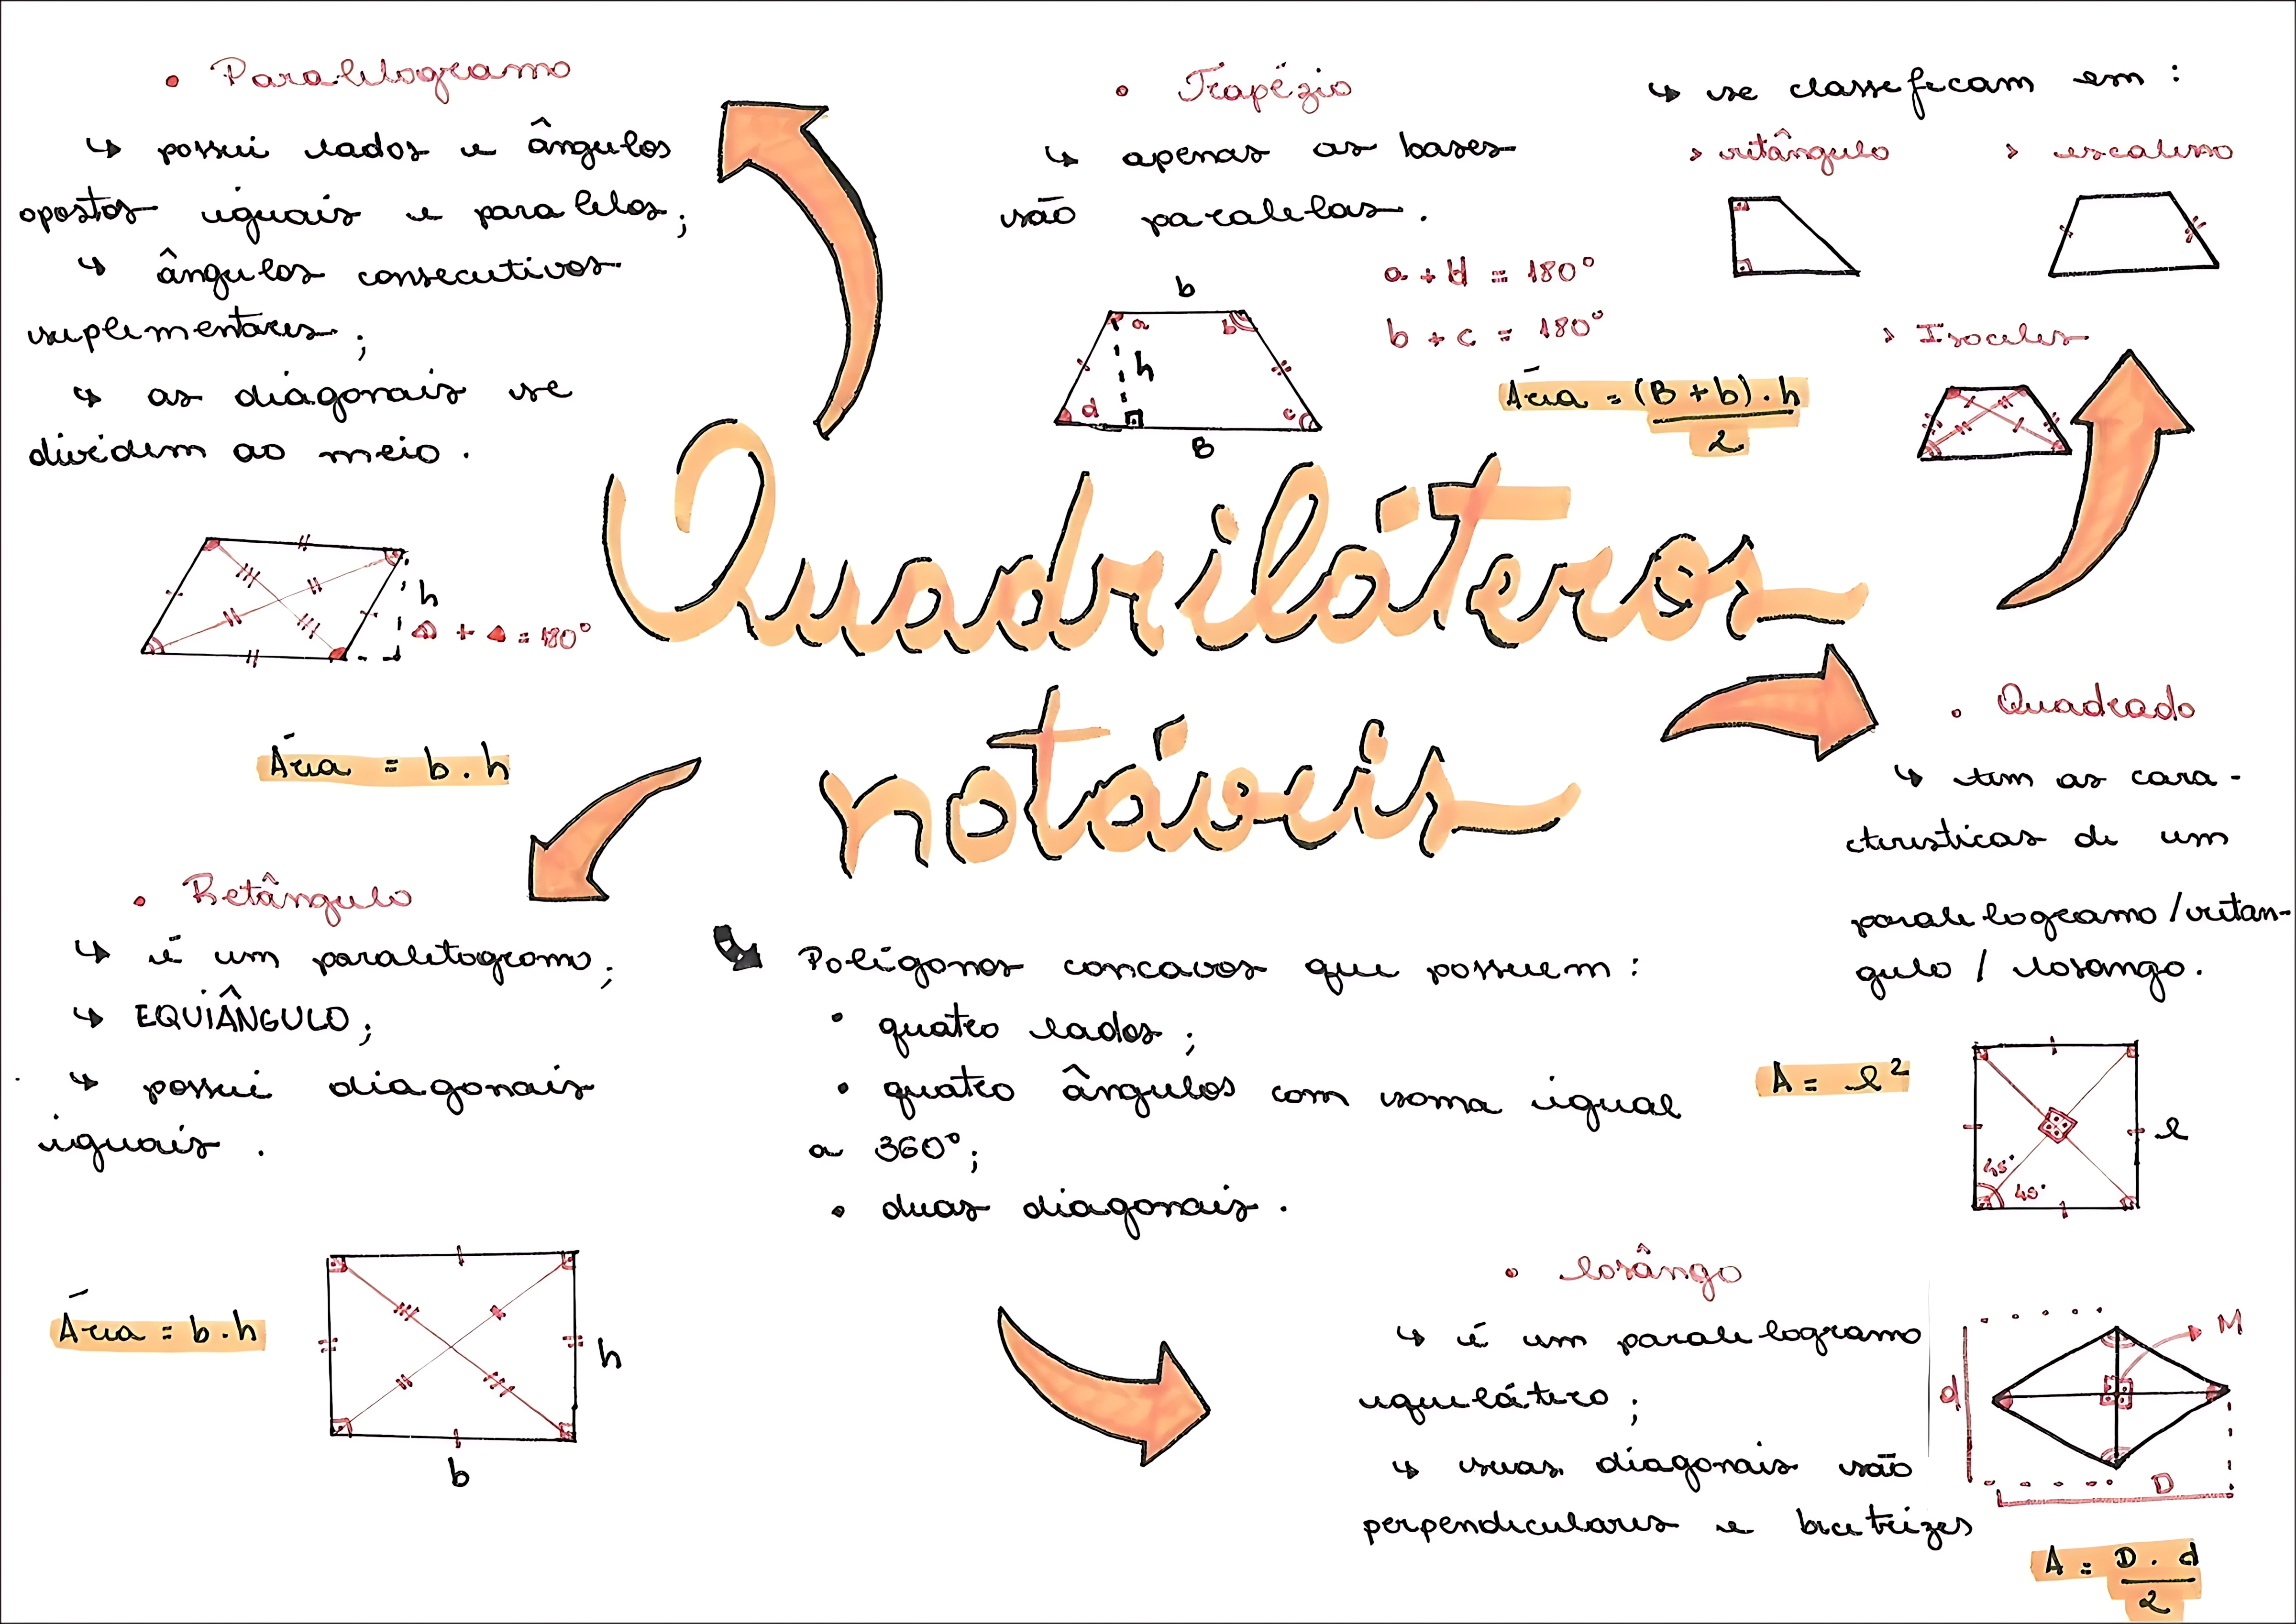 • Paralelogramo
↳ possui lados e ângulos
opostos iguais e paralelos;
↳ ângulos consecutivos
suplementares;
↳ as diagonais se
dividem ao meio.
h
+ = 180°
Área = b.h
• Trapézio
↳ apenas as bases
são paralelas.
b
a
b
h
d
c
B
a + d = 180°
b + c = 180°
Área = (B + b) . h
2
↳ se classificam em :
> retângulo
> escaleno
> Isoceles
Quadriláteros
notáveis
• Quadrado
↳ tem as cara-
cteristicas de um
paralelogramo / retan-
gulo / losango.
A = l²
l
45°
45°
• Retângulo
↳ é um paralelogramo;
↳ EQUIÂNGULO;
↳ possui diagonais
iguais.
Área = b.h
h
b
↳ Polígonos concavos que possuem :
• quatro lados;
• quatro ângulos com soma igual
a 360°;
• duas diagonais.
• losângo
↳ é um paralelogramo
equilátero;
↳ suas diagonais são
perpendiculares e bicetrizes
M
d
D
A = D . d
2